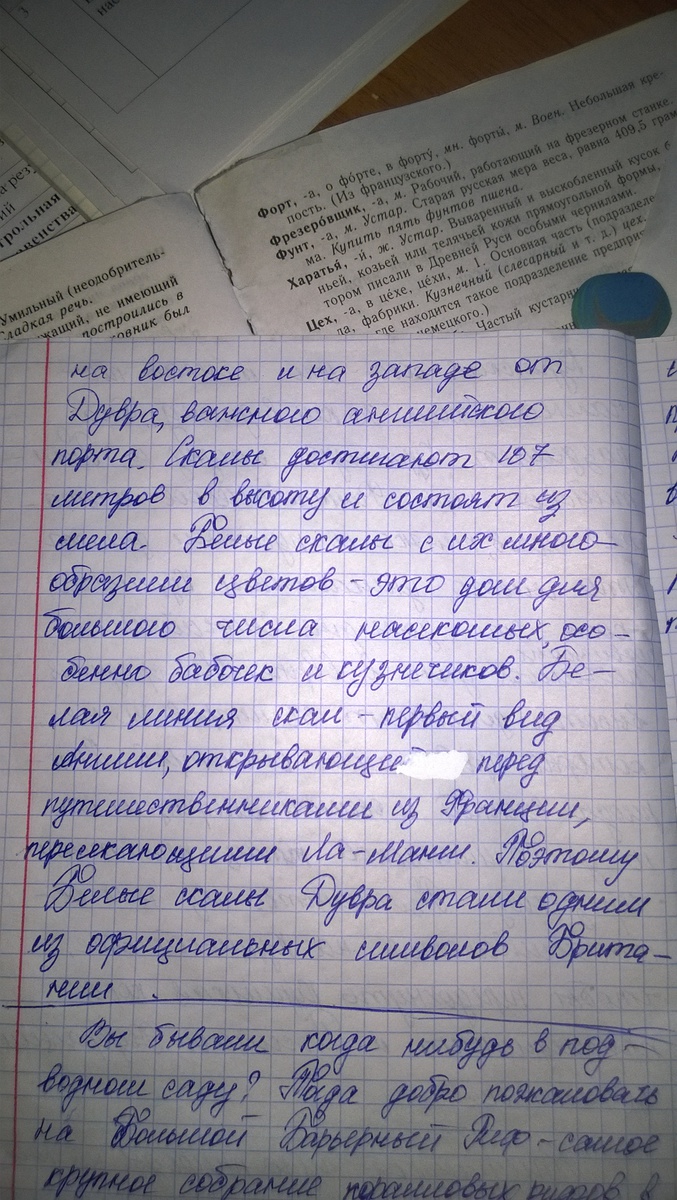 3
нас
а рез
ний
трольная
венства
Умильный (неодобритель-
Сладкая речь.
ужащий, не имеющий
построились в
овник был
Форт, -а, о фо́рте, в форту́, мн. форты́, м. Воен. Небольшая кре-
пость. (Из французского.)
Фрезеро́вщик, -а, м. Рабочий, работающий на фрезерном станке.
Фунт, -а, м. Устар. Старая русская мера веса, равна 409,5 грам
ма. Купить пять фунтов пшена.
Харатья́, -й, ж. Устар. Вываренный и выскобленный кусок б
ньей, козьей или телячьей кожи прямоугольной формы,
тором писали в Древней Руси особыми чернилами.
Цех, -а, в це́хе, це́хи, м. 1. Основная часть (подразделе
да, фабрики. Кузнечный (слесарный и т. д.) цех.
где находится такое подразделение предприя
немецкого.)
Частый кустарни
на востоке и на западе от
Дувра, важного английского
порта. Скалы достигают 107
метров в высоту и состоят из
мела. Белые скалы с их много-
образием цветов - это дом для
большого числа насекомых, осо-
бенно бабочек и кузнечиков. Бе-
лая линия скал - первый вид
Англии, открывающий перед
путешественниками из Франции,
пересекающими Ла-Манш. Поэтому
Белые скалы Дувра стали одним
из официальных символов Брита-
нии.
Вы бывали когда нибудь в под-
водном саду? Тогда добро пожаловать
на Большой Барьерный Риф - самое
крупное собрание коралловых рифов в